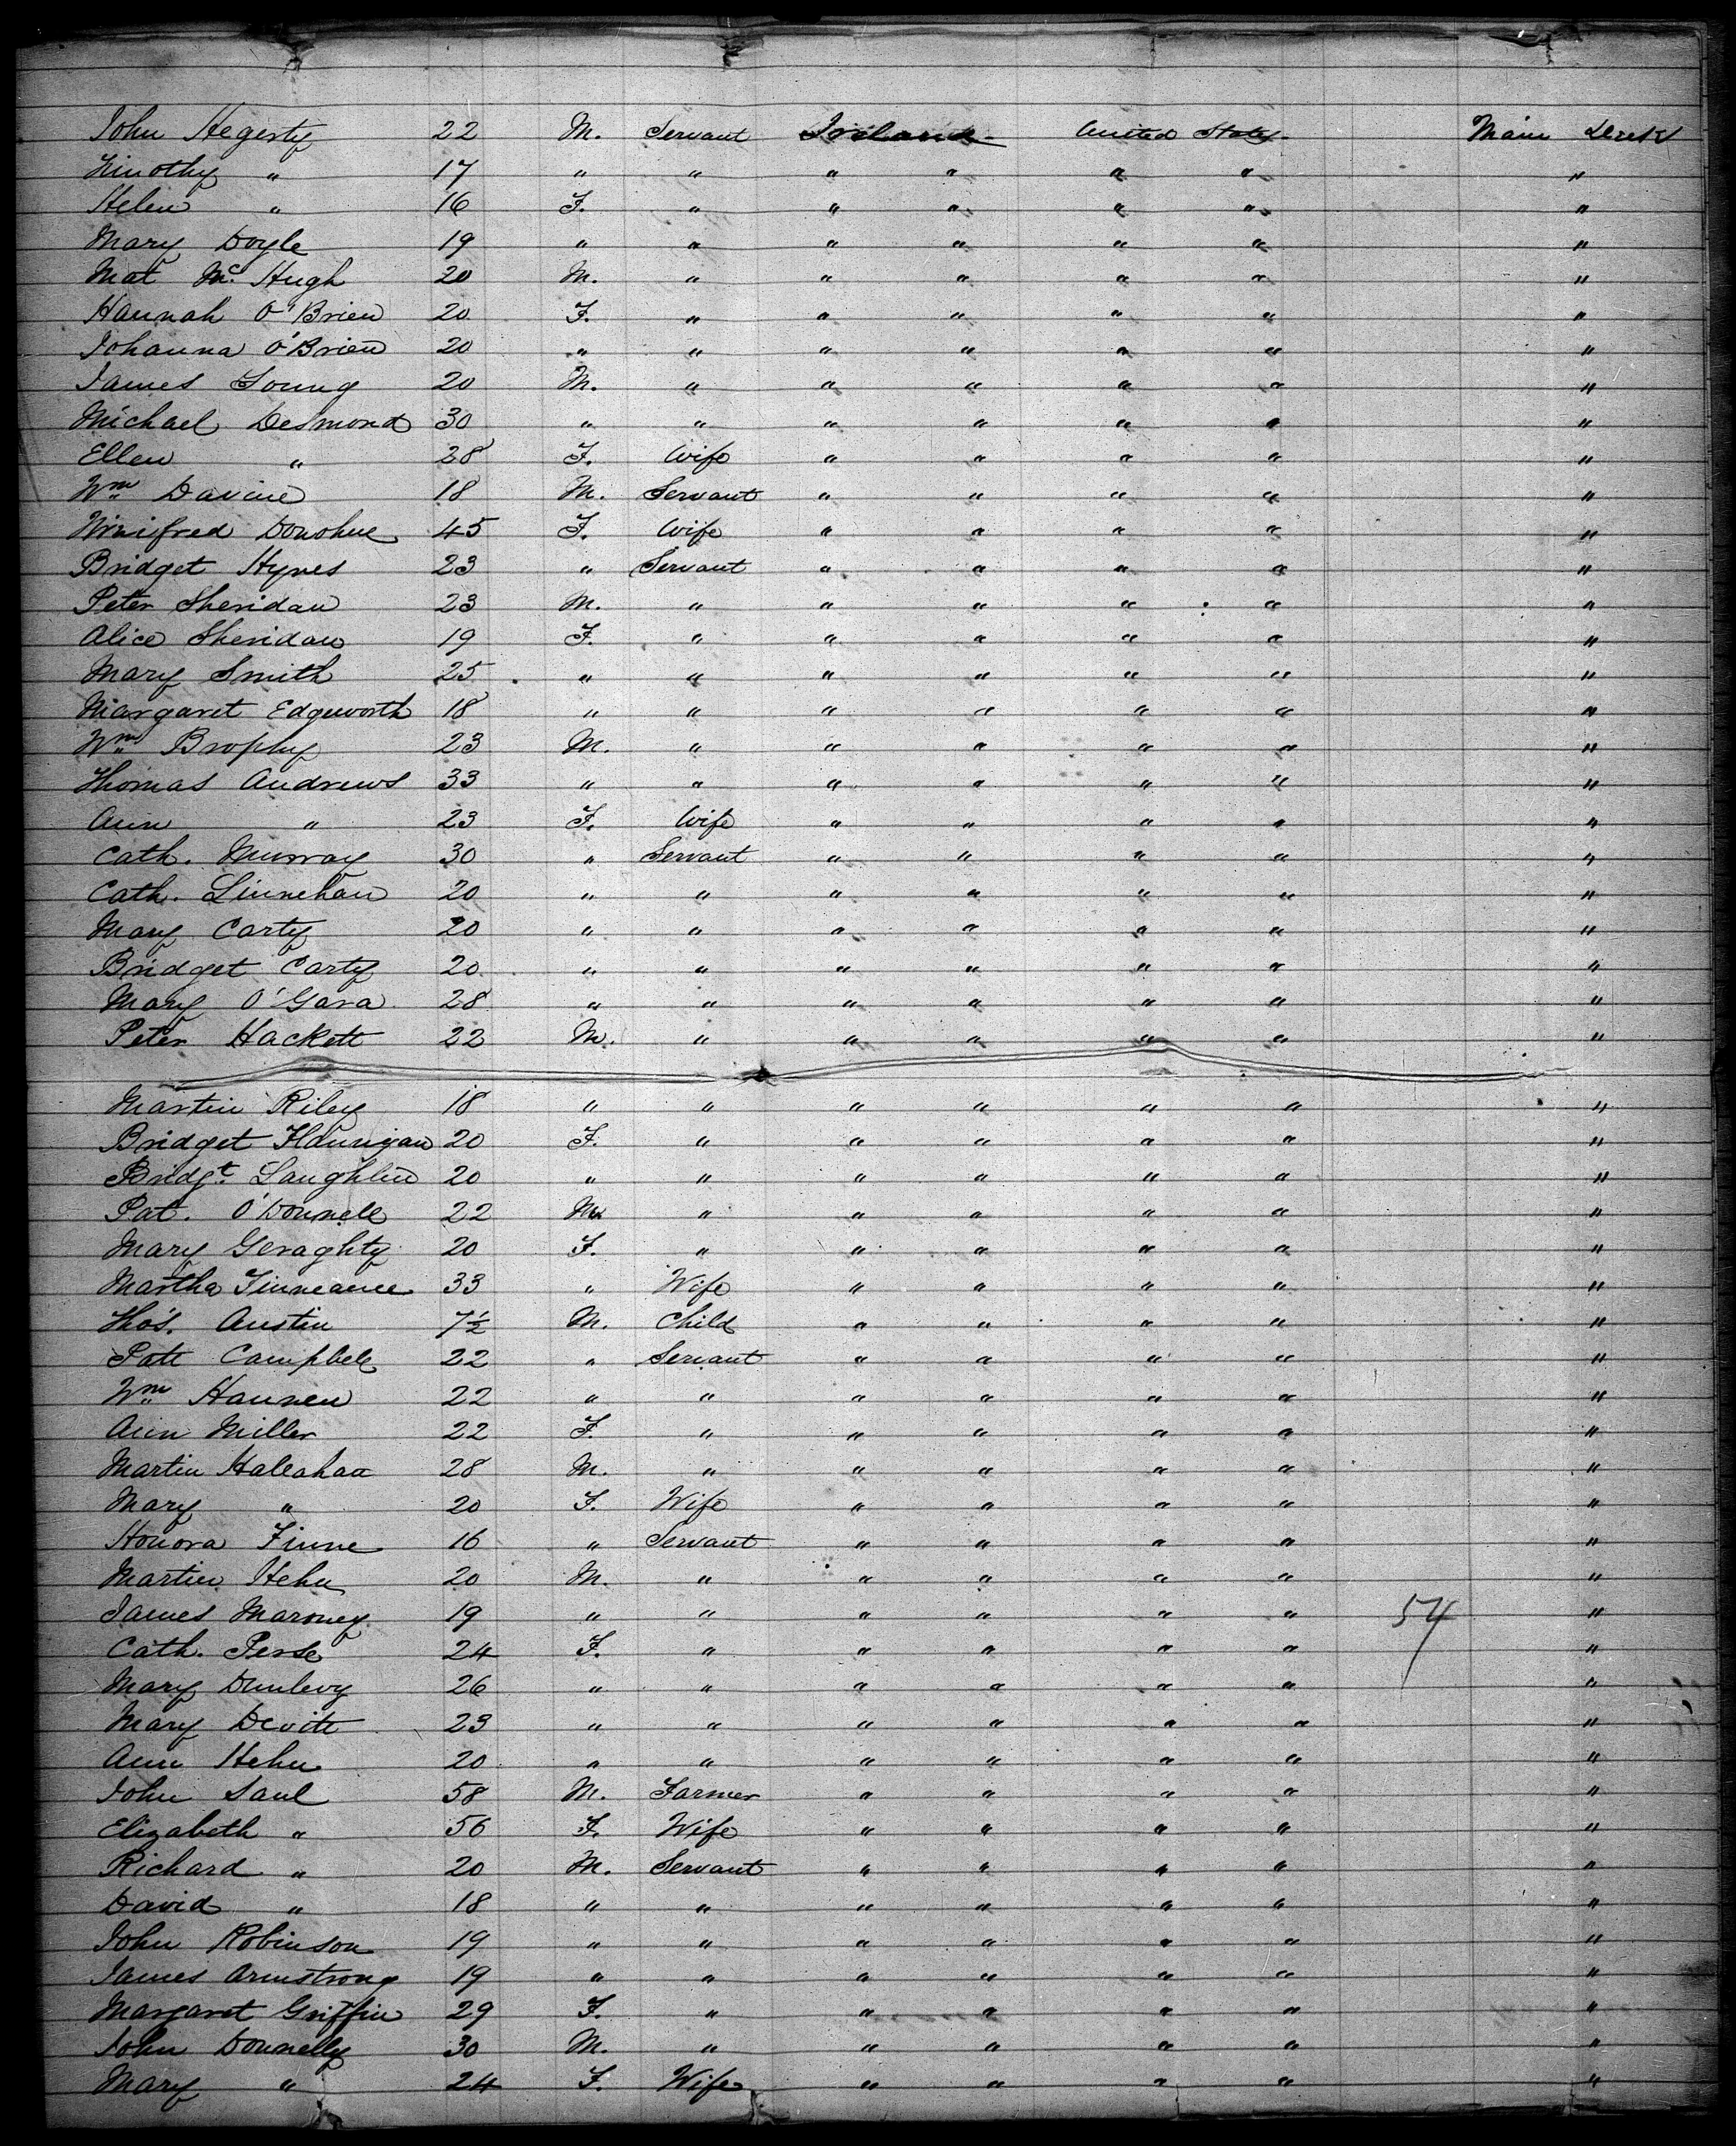 John Hegerty 22 M. Servant Ireland United States Main Deck
Timothy " 17 " " " " " " "
Helen " 16 F. " " " " " "
Mary Doyle 19 " " " " " " "
Mat McHugh 20 M. " " " " " "
Hannah O'Brien 20 F. " " " " " "
Johanna O'Brien 20 " " " " " " "
James Young 20 M. " " " " " "
Michael Desmond 30 " " " " " " "
Ellen " 28 F. Wife " " " " "
Wm Davine 18 M. Servant " " " " "
Winifred Donohue 45 F. Wife " " " " "
Bridget Hynes 23 " Servant " " " " "
Peter Sheridan 23 M. " " " " " "
Alice Sheridan 19 F. " " " " " "
Mary Smith 25 " " " " " " "
Margaret Edgeworth 18 " " " " " " "
Wm Brophy 23 M. " " " " " "
Thomas Andrews 33 " " " " " " "
Ann " 23 F. Wife " " " " "
Cath. Murray 30 " Servant " " " " "
Cath. Linnehan 20 " " " " " " "
Mary Carty 20 " " " " " " "
Bridget Carty 20 " " " " " " "
Mary O'Gara 28 " " " " " " "
Peter Hackett 22 M. " " " " " "
Martin Riley 18 " " " " " " "
Bridget Flannigan 20 F. " " " " " "
Bridgt. Laughlin 20 " " " " " " "
Pat. O'Donnell 22 M " " " " " "
Mary Geraghty 20 F. " " " " " "
Martha 33 " Wife " " " " "
Thos. Austin 7½ M. Child " " " " "
Patt Campbell 22 " Servant " " " " "
Wm Hannen 22 " " " " " " "
Ann Miller 22 F. " " " " " "
Martin Hallahan 28 M. " " " " " "
Mary " 20 F. Wife " " " " "
Honora Finne 16 " Servant " " " " "
Martin Hehu 20 M. " " " " " "
James Maroney 19 " " " " " " 54 "
Cath. Perse 24 F. " " " " " "
Mary Dunlevy 26 " " " " " " "
Mary Devitt 23 " " " " " " "
Ann Hehu 20 " " " " " " "
John Saul 58 M. Farmer " " " " "
Elizabeth " 56 F. Wife " " " " "
Richard " 20 M. Servant " " " " "
David " 18 " " " " " " "
John Robinson 19 " " " " " " "
James Armstrong 19 " " " " " " "
Margaret Griffin 29 F. " " " " " "
John Donnelly 30 M. " " " " " "
Mary " 24 F. Wife " " " " "